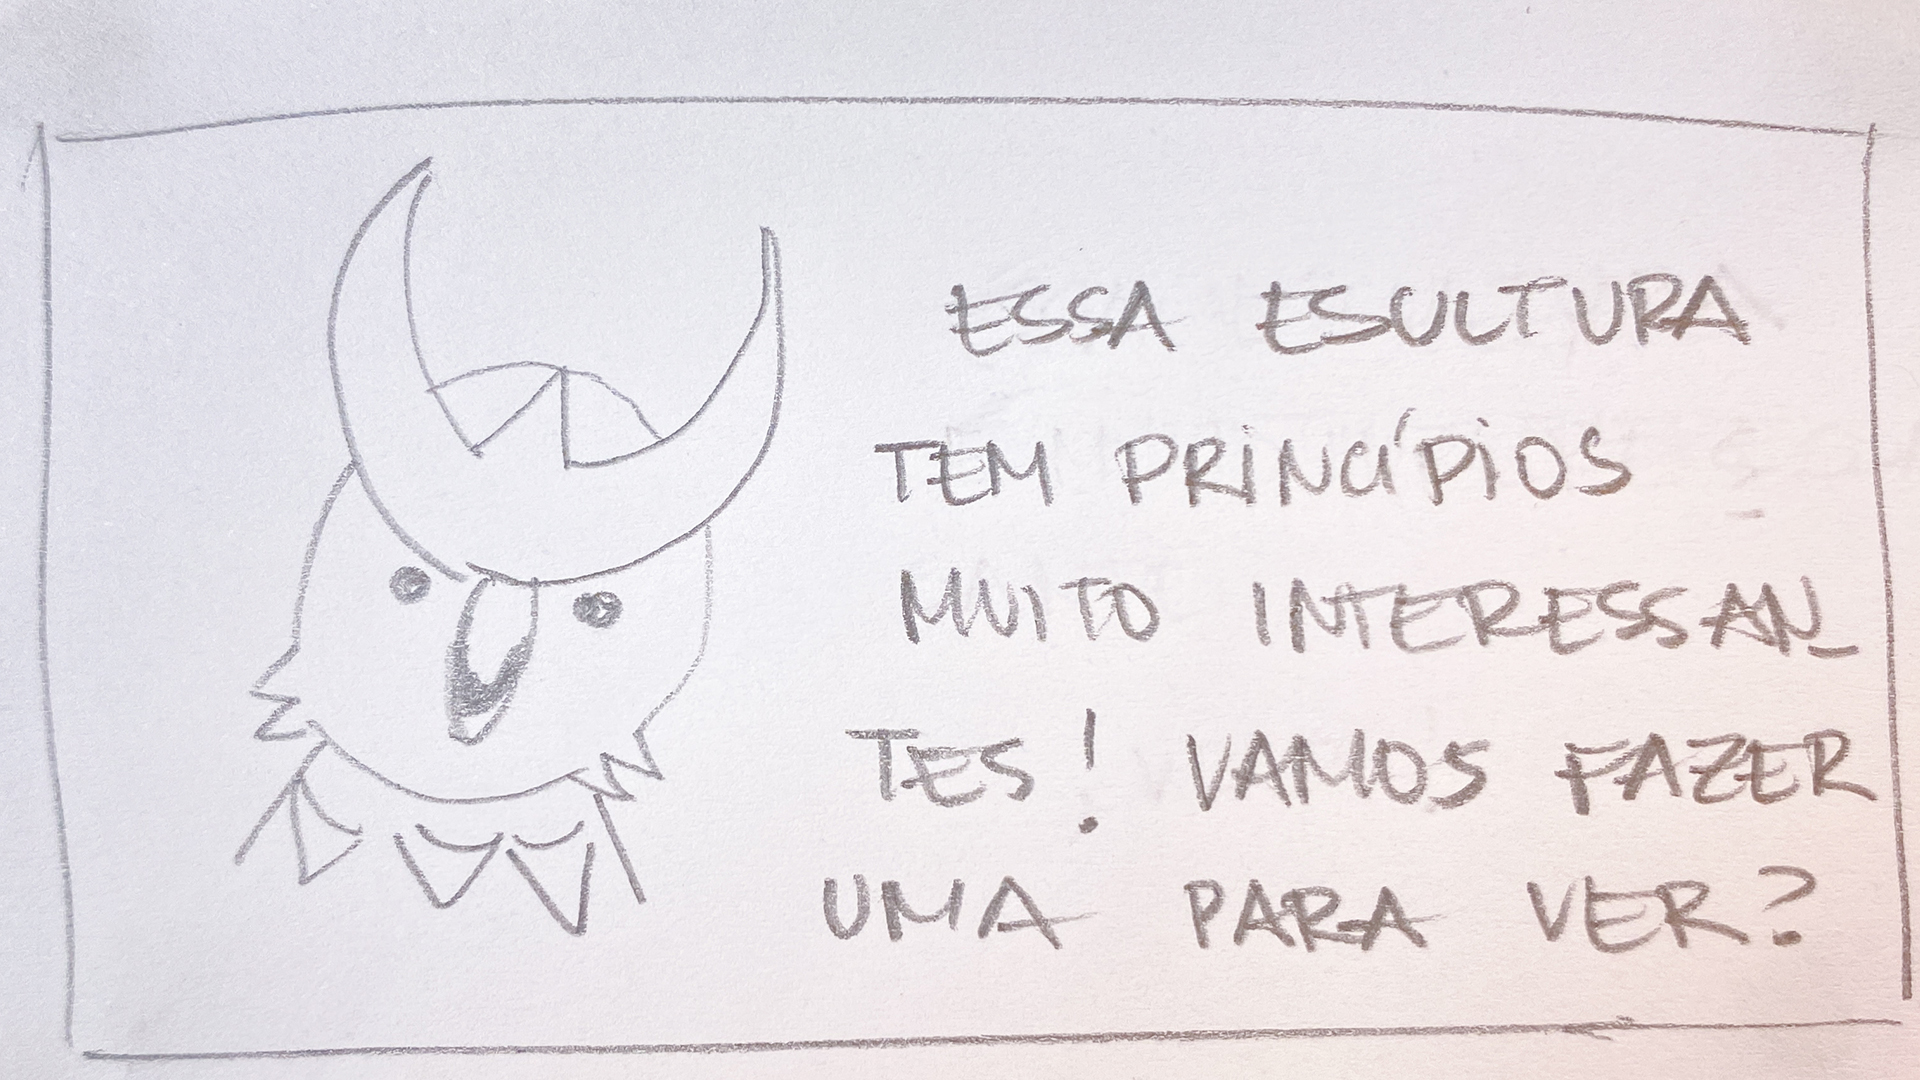 ESSA ESULTURA
TEM PRINCÍPIOS
MUITO INTERESSAN_
TES! VAMOS FAZER
UMA PARA VER?